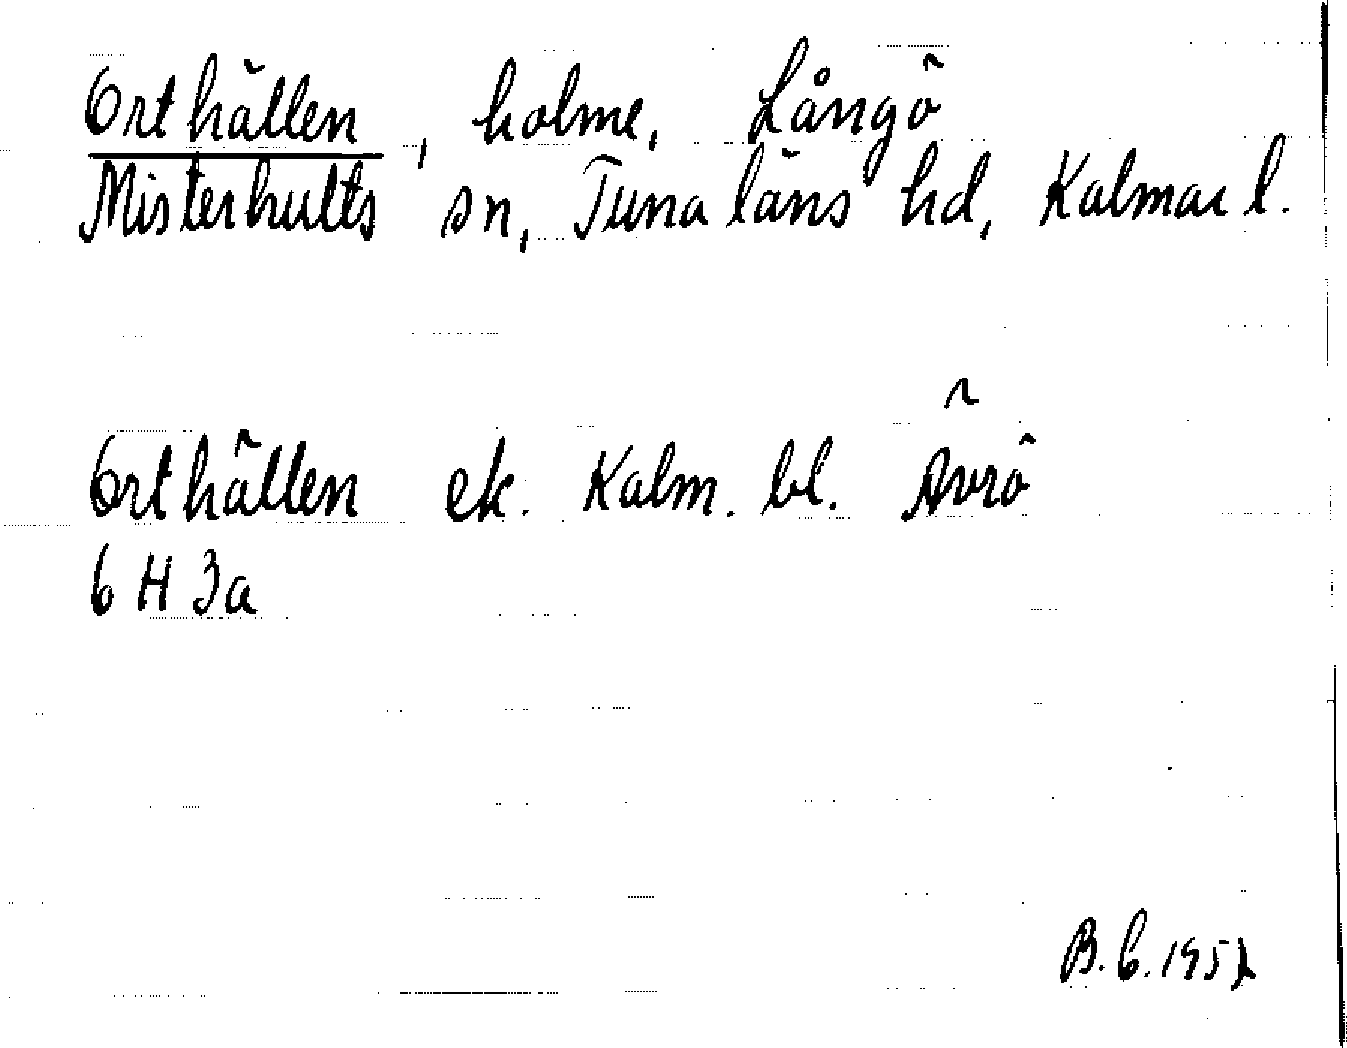 Orthällen, holme, Långö
Misterhults sn, Tuna läns hd, Kalmar l.
Orthällen ek. Kalm. bl. Ävrö
6 H 3a